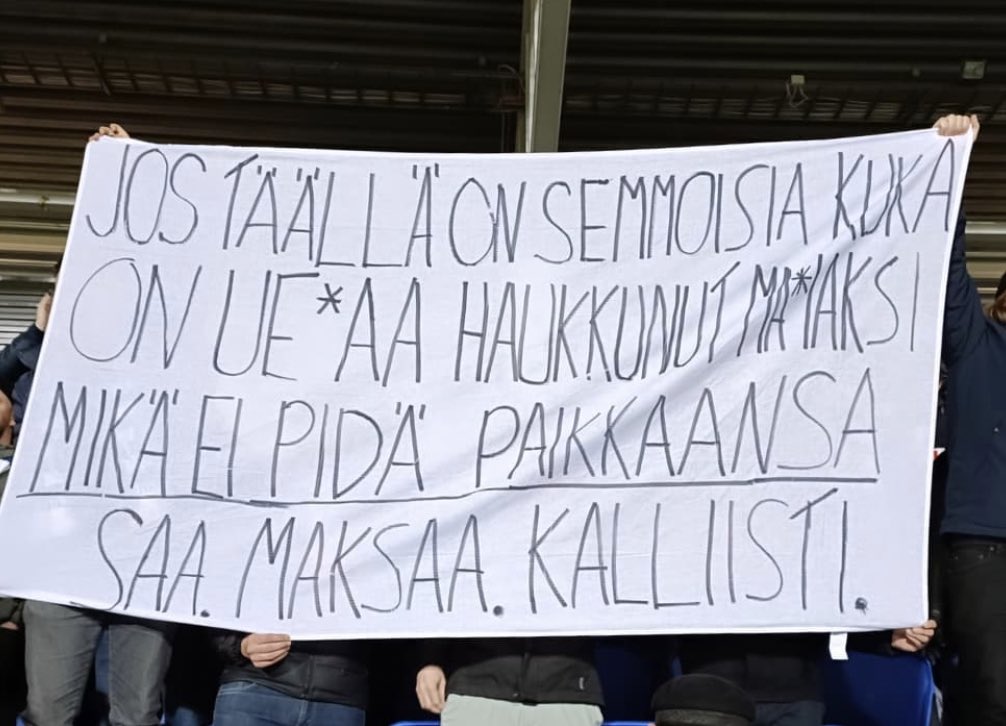 JOS TÄÄLLÄ ON SEMMOISIA KUKA
ON UE*AA HAUKKUNUT MA*AKSI
MIKÄ EI PIDÄ PAIKKAANSA
SAA. MAKSAA. KALLIISTI.